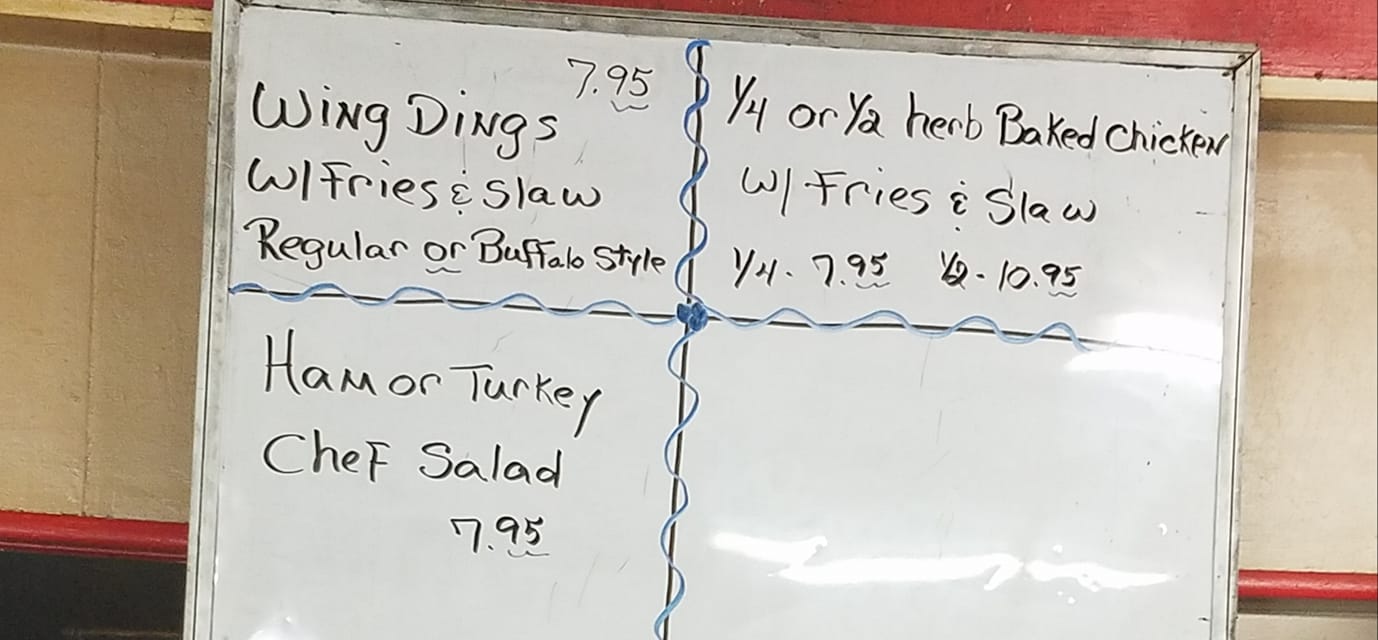 7.95
Wing Dings
W/ Fries & Slaw
Regular or Buffalo Style
1/4 or 1/2 herb Baked Chicken
W/ Fries & Slaw
1/4 - 7.95 1/2 - 10.95
Ham or Turkey
Chef Salad
7.95